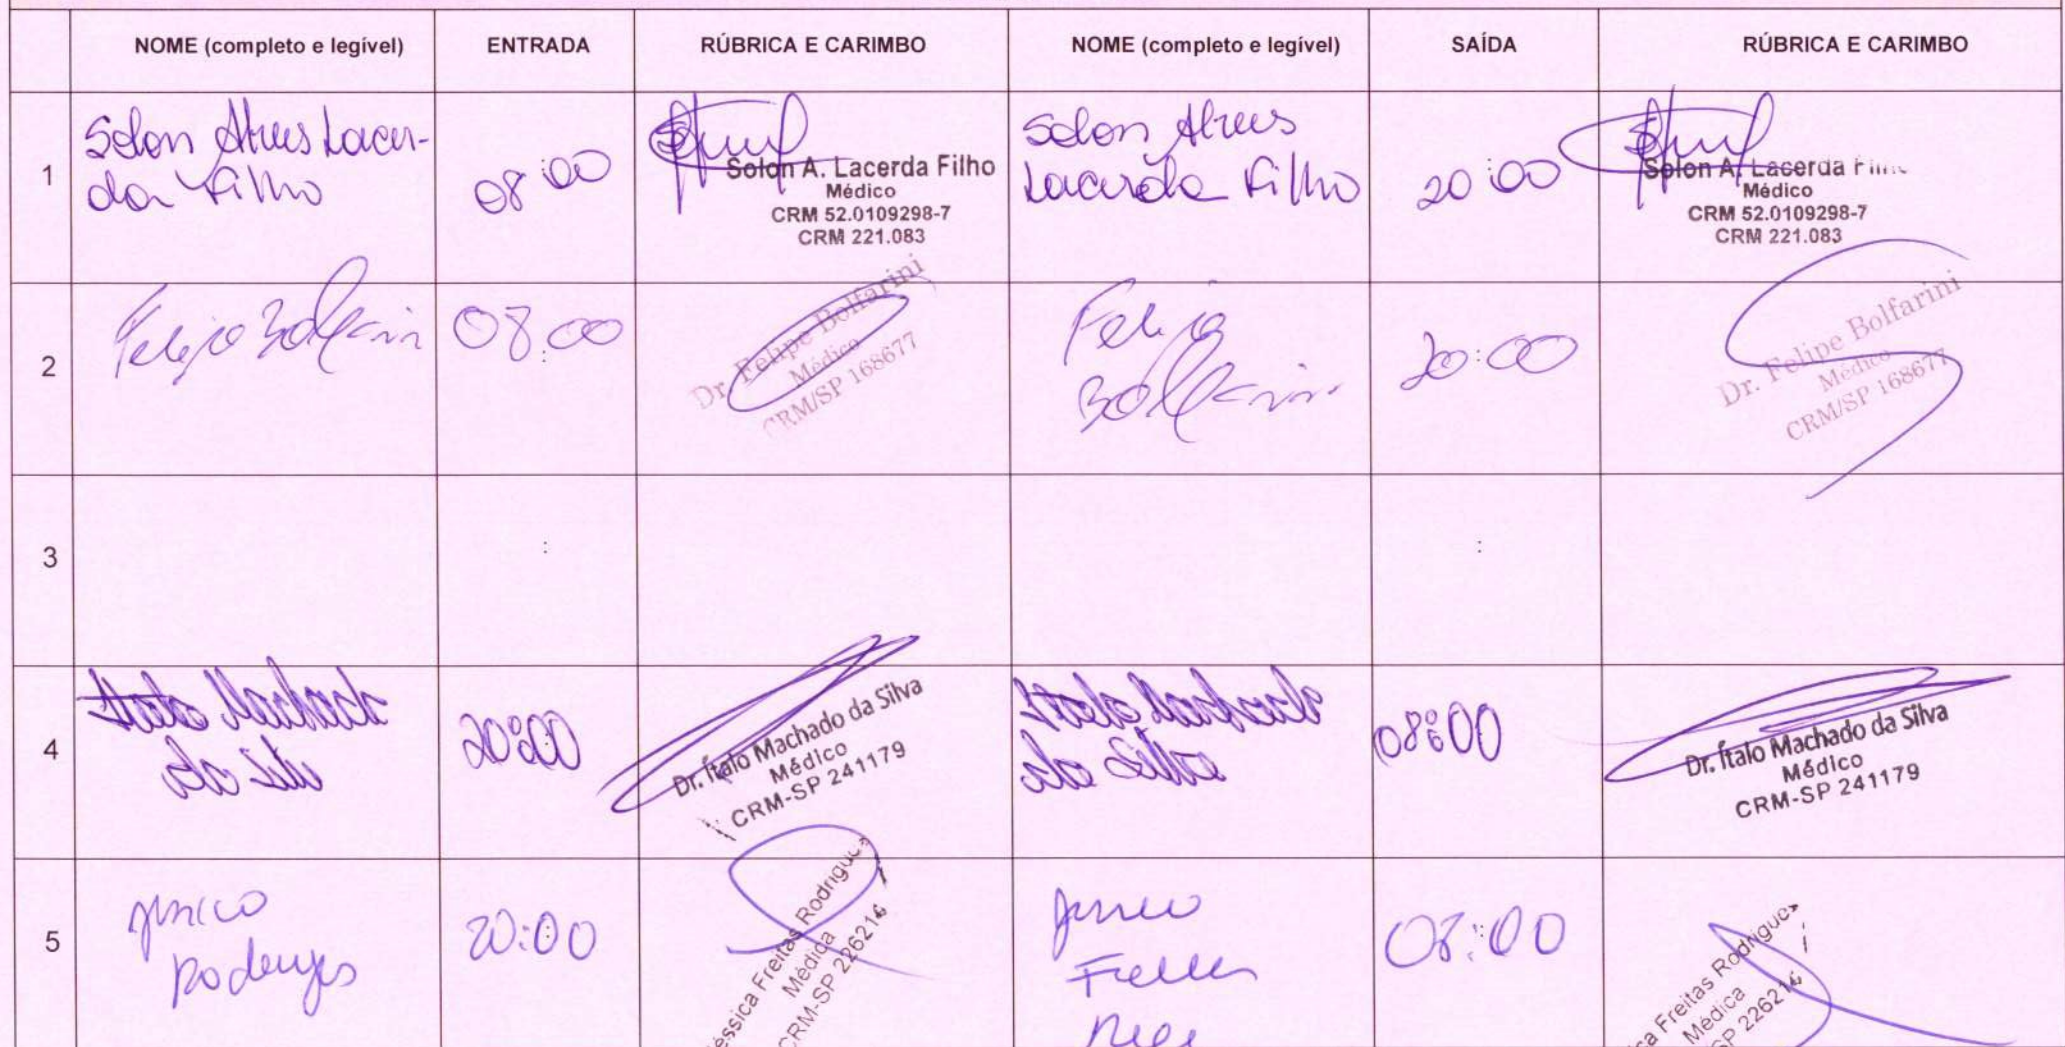 NOME (completo e legível) ENTRADA RÚBRICA E CARIMBO NOME (completo e legível) SAÍDA RÚBRICA E CARIMBO
1
Solon Alves Lacer-
da Filho
08:00
Solon A. Lacerda Filho
Médico
CRM 52.0109298-7
CRM 221.083
Solon Alves
Lacerda Filho
20:00
Solon A. Lacerda
Médico
CRM 52.0109298-7
CRM 221.083
2
Felipe Bolfarini
08:00
Dr. Felipe Bolfarini
Médico
CRM/SP 168677
Felipe
Bolfarini
20:00
Dr. Felipe Bolfarini
Médico
CRM/SP 168677
3
:
:
4
Italo Machado
da Silva
20:00
Dr. Ítalo Machado da Silva
Médico
CRM-SP 241179
Italo Machado
da Silva
08:00
Dr. Ítalo Machado da Silva
Médico
CRM-SP 241179
5
Rodrigues
20:00
Freitas
Médica
CRM-SP
08:00
Freitas
Médica